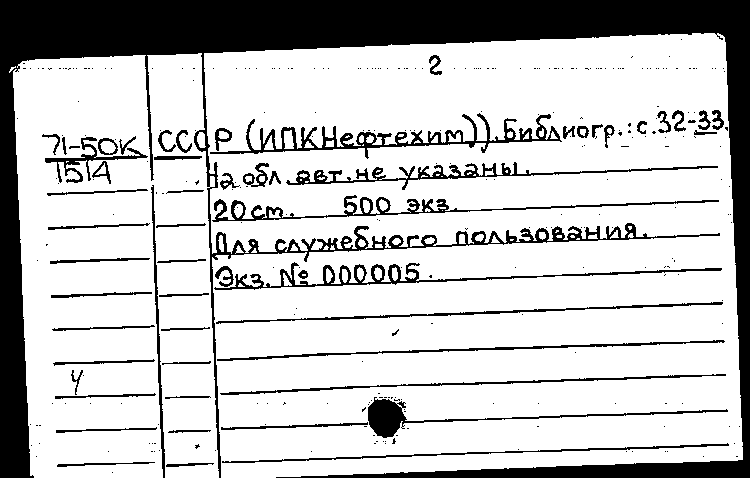 2
71-50К СССР (ИПКНефтехим)). Библиогр.: с.32-33.
1514 На обл. авт. не указаны.
20 cm. 500 экз.
Для служебного пользования.
Экз. № 000005.
4